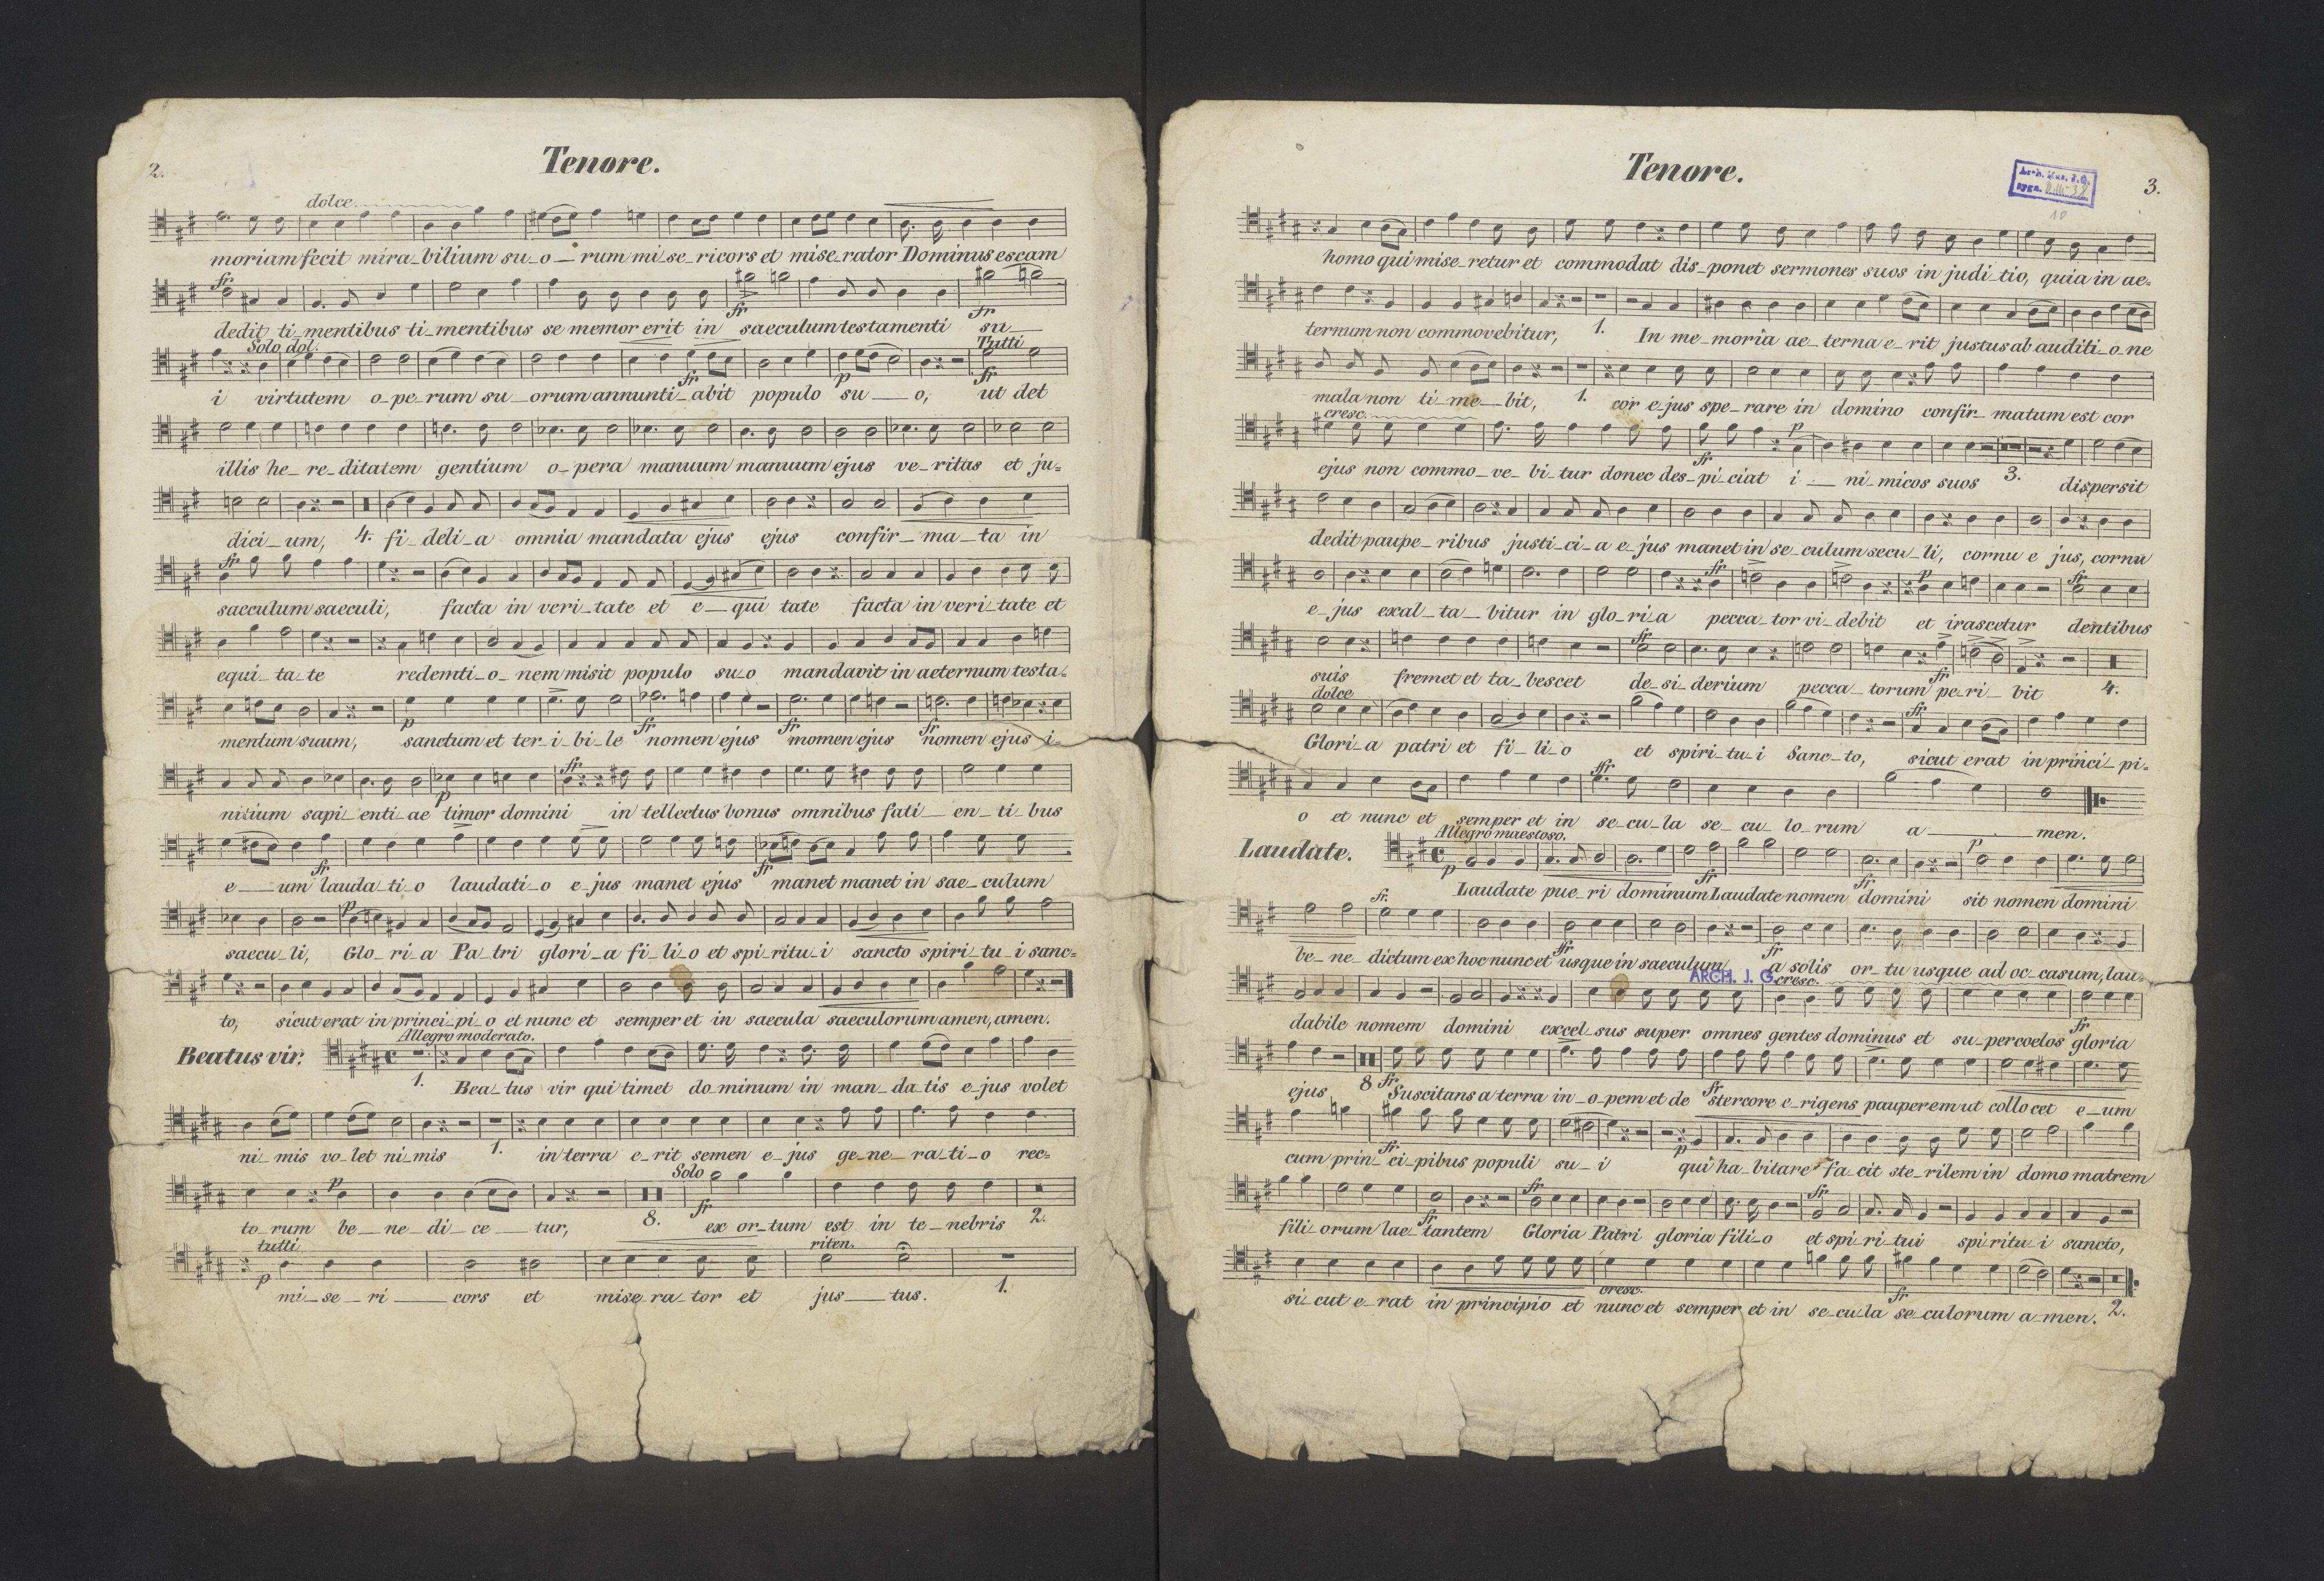 2.
Tenore.
dolce
moriam fecit mira_bilium su_o_rum mi_se_ricors et mise_rator Dominus escam
fr
dedit ti_mentibus ti_mentibus se memor erit in saeculum testamenti su_
fr fr
Solo dol. Tutti
i virtutem o_pe_rum su_orum annunti_abit populo su_o, ut det
fr p fr
illis he_re_ditatem gentium o_pera manuum manuum ejus ve_ritas et ju=
dici_um, 4. fi_deli_a omnia mandata ejus ejus confir_ma_ta in
fr
saeculum saeculi, facta in veri_tate et e_qui tate facta in veri_tate et
equi_ta_te redemti_o_nem misit populo su_o mandavit in aeternum testa=
mentum suum, sanctum et ter_i_bi_le nomen ejus momen ejus nomen ejus i_
p fr fr fr
fr
nitium sapi_enti_ae timor domini in tellectus bonus omnibus fati_en_ti_bus
p
e_um lauda_ti_o laudati_o e_jus manet ejus manet manet in sae_culum
fr fr
p
saecu_li, Glo_ri_a Pa_tri glori_a fi_li_o et spi_ritu_i sancto spiri_tu_i sanc=
to, sicut erat in princi_pi_o et nunc et semper et in saecula saeculorum amen, amen.
Allegro moderato.
Beatus vir.
1. Bea_tus vir qui timet do_minum in man_da_tis e_jus volet
ni_mis vo_let ni_mis 1. in terra e_rit semen e_jus ge_ne_ra_ti_o rec=
p Solo
to_rum be_ne_di_ce_tur, 8. ex or_tum est in te_nebris 2.
fr
tutti riten.
p mi_se_ri_cors et mise_ra_tor et jus_tus. 1.
Tenore.
Arch. Mus. J.G.
sygn.
3.
homo qui mise_retur et commodat dis_ponet sermones suos in judi_tio, quia in ae=
ternum non commovebitur, 1. In me_moria ae_terna e_rit justus ab auditi_o_ne
mala non ti_me_bit, 1. cor e_jus spe_rare in domino confir_matum est cor
cresc. p
ejus non commo_ve_bi_tur donec des_pi_ciat i_ni_micos suos 3. dispersit
fr
dedit paupe_ribus justi_ci_a e_jus manet in se_culum secu_li, cornu e jus, cornu
fr p fr
e_jus exal_ta_bitur in glo_ri_a pecca_tor vi_debit et irascetur dentibus
fr
suis fremet et ta_bescet de_si_derium pecca_torum pe_ri_bit 4.
fr
dolce fr
Glori_a patri et fi_li_o et spiri_tu_i Sanc_to, sicut erat in princi_pi=
ffr
o et nunc et semper et in se_cu_la se_cu_lo_rum a_men.
Allegro maestoso.
Laudate.
p p
Laudate pue_ri dominum Laudate nomen domini sit nomen domini
fr fr
fr.
be_ne_dictum ex hoc nunc et usque in saeculum a solis or_tu usque ad oc_casum, lau=
ffr fr
ARCH. J. G.
cresc.
dabile nomem domini excel_sus super omnes gentes dominus et su_per coelos gloria
fr
ejus 8 Suscitans a terra in_o_pem et de stercore e_rigens pauperem ut collocet e_um
fr fr
cum prin_ci_pibus populi su_i qui ha_bitare fa_cit ste_rilem in domo matrem
fr p
fr fr
fili_orum lae_tantem Gloria Patri gloria fili_o et spi_ri_tui spiritu_i sancto,
fr
si_cut e_rat in principio et nunc et semper et in se_cu_la se_culorum a_men. 2.
cresc. fr